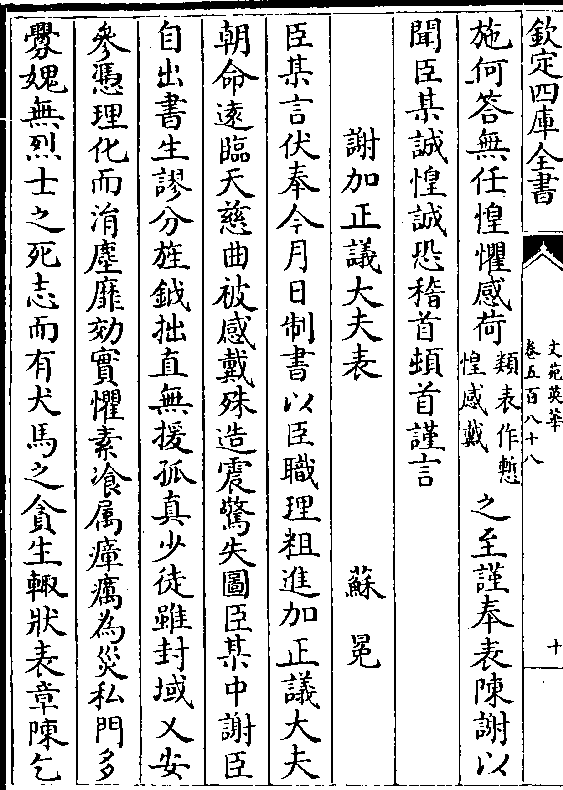 欽定四庫全書
文苑英華
卷五百八十八
十
施何答無任惶懼感荷類表作慙惶感戴之至謹奉表陳謝以
聞臣某誠惶誠恐稽首頓首謹言
謝加正議大夫表 蘇冕
臣某言伏奉今月日制書以臣職理粗進加正議大夫
朝命遠臨天慈曲被感戴殊造震驚失圖臣某中謝臣
自出書生謬分旌鉞拙直無援孤真少徒雖封域乂安
參憑理化而涓塵靡効實懼素飡属瘴癘為災私門多
釁媿無烈士之死志而有犬馬之貪生輙狀表章陳乞